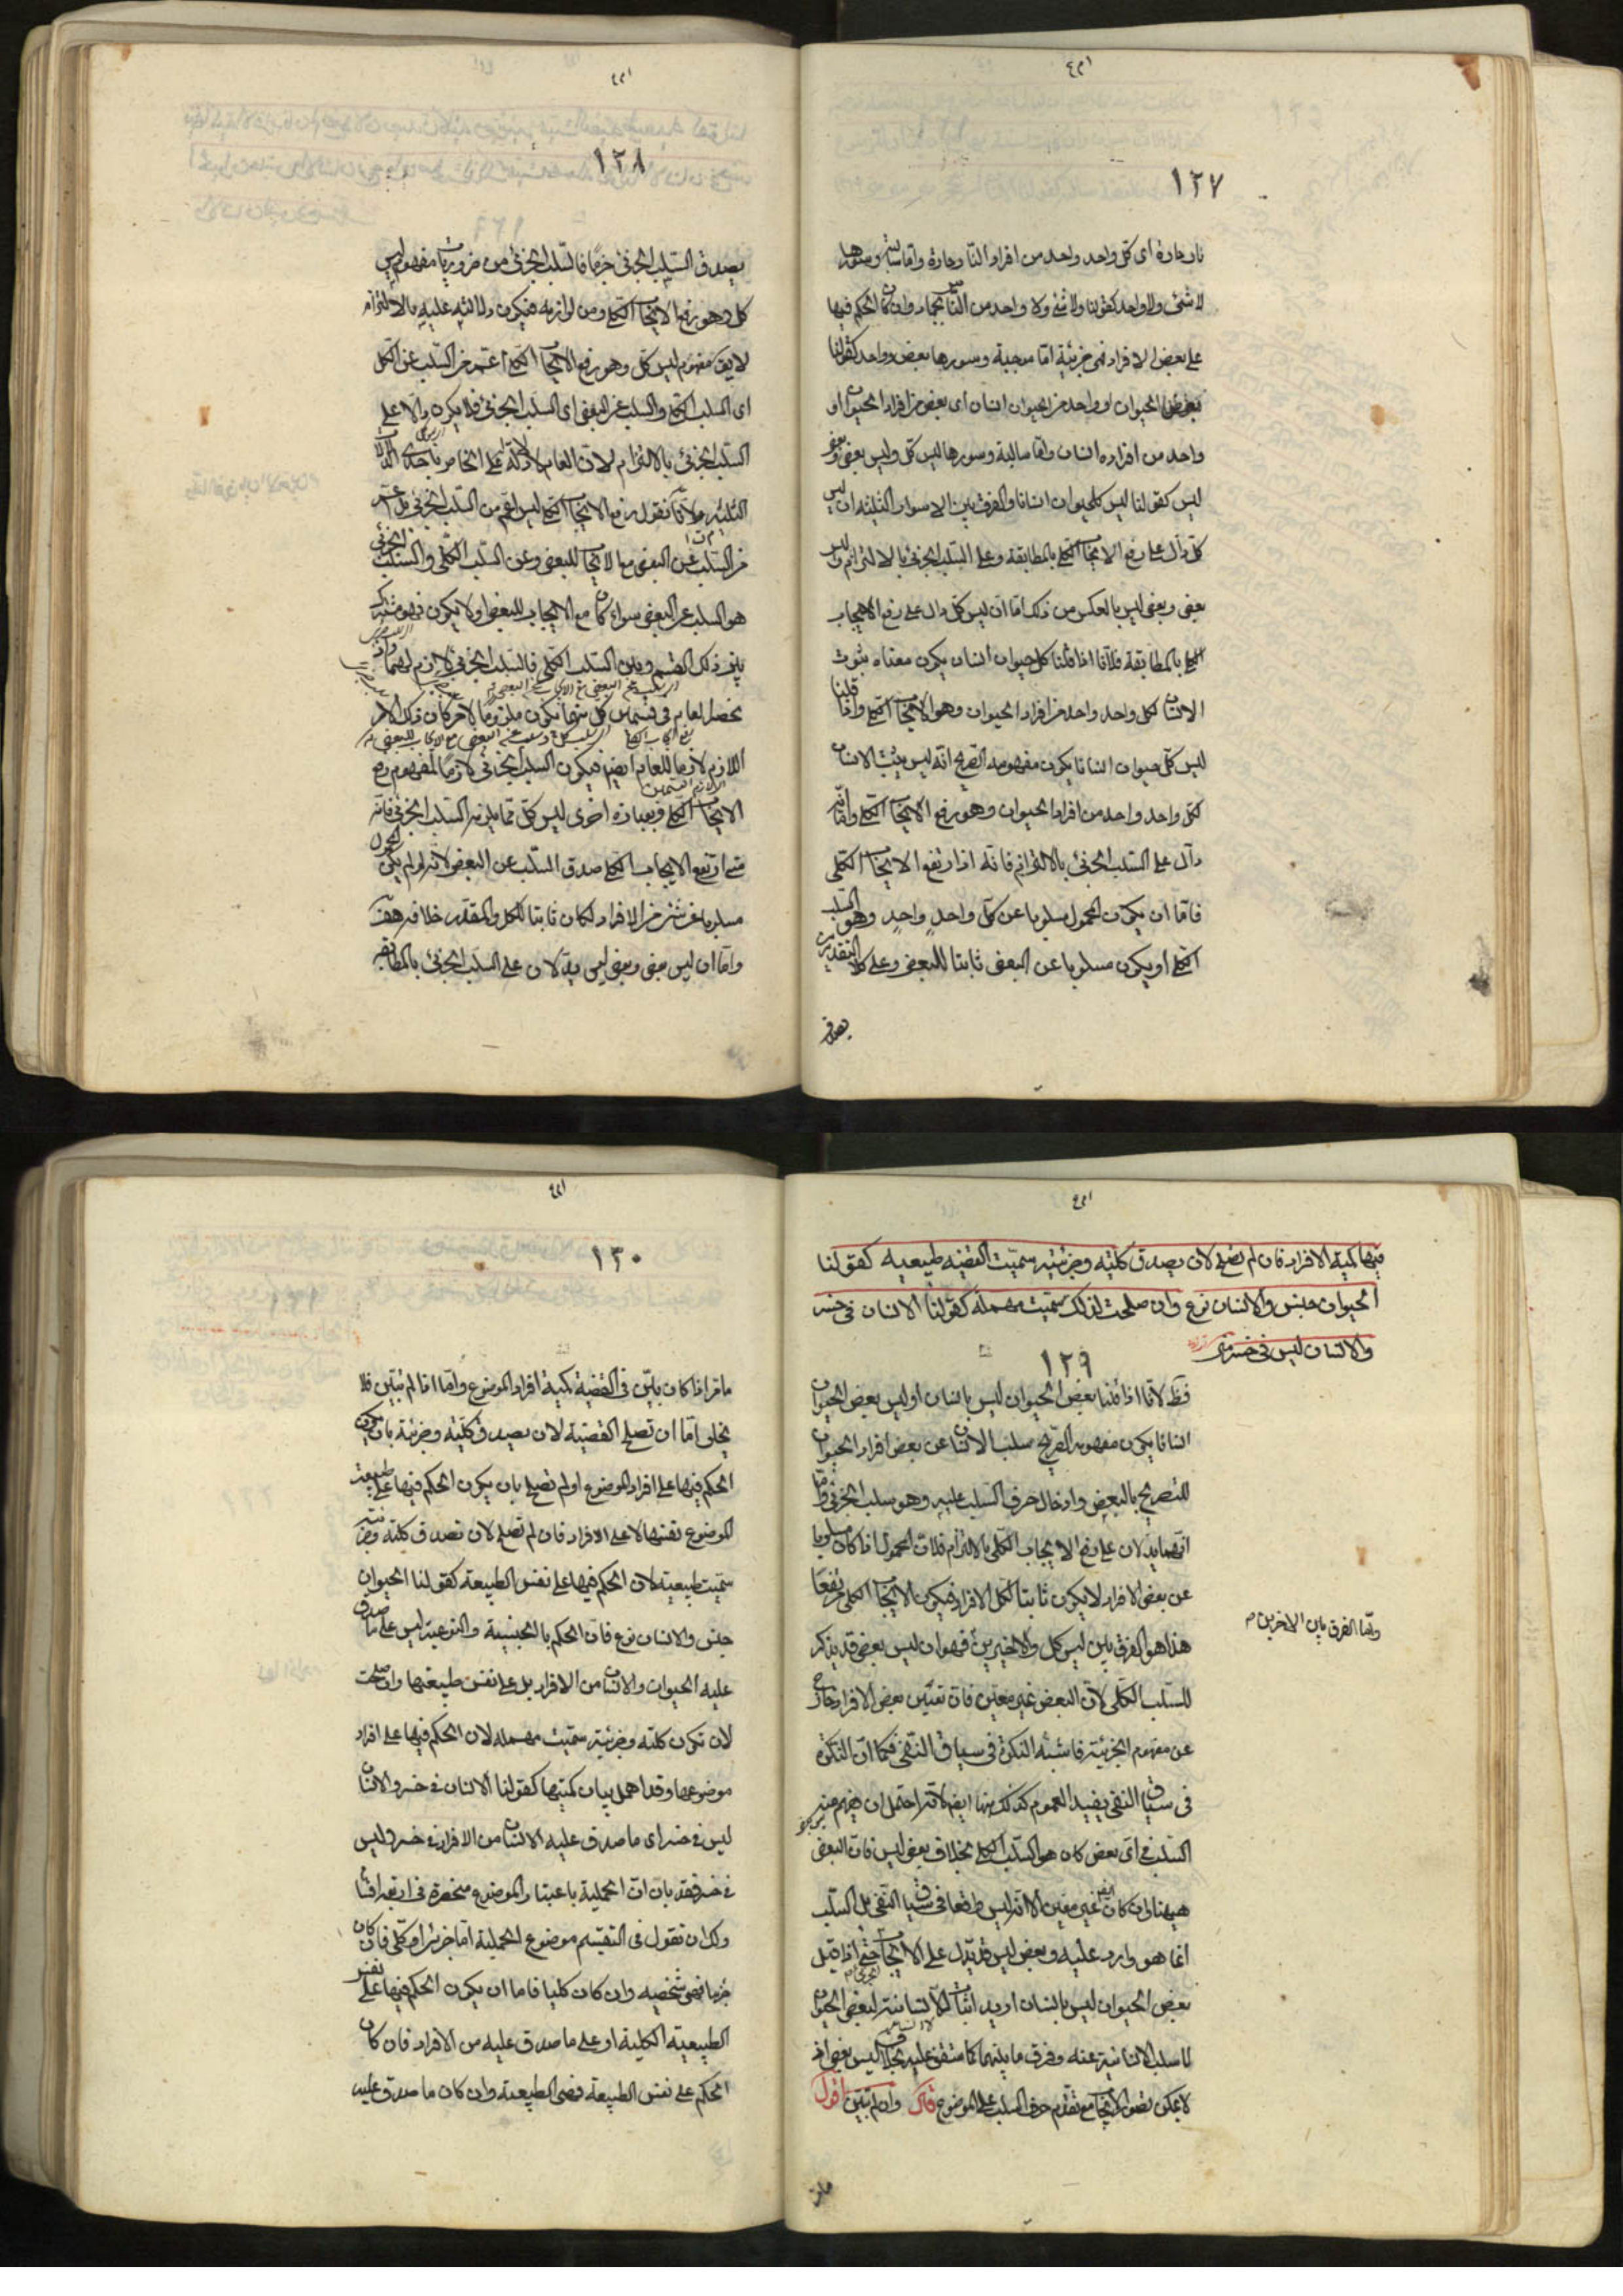 ١٢٧
نار حارة اى كل واحد واحد من افراد النار حارة واما سالبة وسورها
لا شئ ولا واحد كقولنا لا شئ ولا واحد من الناس بجماد وان كان الحكم فيها
على بعض الافراد فهى جزئية اما موجبة وسورها بعض وواحد كقولنا
بعض الحيوان او واحد من الحيوان انسان اى بعض من افراد الحيوان او
واحد من افراده انسان واما سالبة وسورها ليس كل وليس بعض وبعض
ليس كقولنا ليس كل حيوان انسانا والفرق بين الاسوار الثلثة ان ليس
كل دال على رفع الايجاب الكلى بالمطابقة وعلى السلب الجزئى بالالتزام وليس
بعض وبعض ليس بالعكس من ذلك اما ان ليس كل دال على رفع الايجاب
الكلى بالمطابقة فلانا اذا قلنا كل حيوان انسان يكون معناه ثبوت
الانسان لكل واحد واحد من افراد الحيوان وهو الايجاب الكلى واذا قلنا
ليس كل حيوان انسانا يكون مفهومه الصريح انه ليس يثبت الانسان
لكل واحد واحد من افراد الحيوان وهو رفع الايجاب الكلى واما انه
دال على السلب الجزئى بالالتزام فانه اذا ارتفع الايجاب الكلى
فاما ان يكون المحمول مسلوبا عن كل واحد واحد وهو السلب
الكلى او يكون مسلوبا عن البعض ثابتا للبعض وعلى كلا التقديرين
يصدق
١٢٨
يصدق السلب الجزئى جزما فالسلب الجزئى من ضروريات مفهوم ليس
كل وهو رفع الايجاب الكلى ومن لوازمه فيكون دلالته عليه بالالتزام
لا يقال مفهوم ليس كل وهو رفع الايجاب الكلى اعم من السلب عن الكل
اى السلب الكلى والسلب عن البعض اى السلب الجزئى فلا يكون دالا على
السلب الجزئى بالالتزام لان العام لا دلالة له على الخاص باحدى الدلالات
الثلث لانا نقول رفع الايجاب الكلى ليس اعم من السلب الجزئى بل اعم
من السلب عن البعض مع الايجاب للبعض وعن السلب الكلى والسلب الجزئى
هو السلب عن البعض سواء كان مع الايجاب للبعض او لا يكون فهو مشترك
بين ذلك القسم وبين السلب الكلى فالسلب الجزئى لازم لهما واذا
انحصر العام فى قسمين كل منهما يكون ملزوما لامر كان ذلك الامر
اللازم لازما للعام ايضا فيكون السلب الجزئى لازما لمفهوم رفع
الايجاب الكلى وبعبارة اخرى ليس كل مما يلزمه السلب الجزئى فانه
متى ارتفع الايجاب الكلى صدق السلب عن البعض لانه لو لم يكن المحمول
مسلوبا عن شئ من الافراد لكان ثابتا للكل والمقدر خلافه هف
واما ان ليس بعض وبعض ليس يدلان على السلب الجزئى بالمطابقة
فيها كمية الافراد فان لم تصلح لان يصدق كلية وجزئية سميت القضية طبيعية كقولنا
الحيوان جنس والانسان نوع وان صلحت لذلك سميت مهملة كقولنا الانسان فى خسر
والانسان ليس فى خسر
١٢٩
فظ لانا اذا قلنا بعض الحيوان ليس بانسان او ليس بعض الحيوان
انسانا يكون مفهومه الصريح سلب الانسان عن بعض افراد الحيوان
للتصريح بالبعض وادخال حرف السلب عليه وهو سلب الجزئى واما
انهما يدلان على رفع الايجاب الكلى بالالتزام فلان المحمول اذا كان مسلوبا
عن بعض الافراد لا يكون ثابتا لكل الافراد فيكون الايجاب الكلى مرتفعا
هذا هو الفرق بين ليس كل والاخيرين فهو ان ليس بعض قد يذكر
واما الفرق بين الاخرين م
للسلب الكلى لان البعض غير معين فان تعيين بعض الافراد خارج
عن مفهوم الجزئية فاشبه النكرة فى سياق النفى فكما ان النكرة
فى سياق النفى يفيد العموم كذلك بهنا ايضا لانه احتمل ان يفهم منه
السلب فى اى بعض كان هو السلب الكلى بخلاف بعض ليس فان البعض
هيهنا وان كان ايضا غير معين الا انه ليس واقعا فى سياق النفى بل السلب
انما هو وارد عليه وبعض ليس قد يدل على الايجاب حتى اذا قيل
بعض الحيوان ليس بانسان اريد اثبات اللاانسانية لبعض الحيوان
لا سلب الانسانية عنه وفرق ما بينهما كما ستقف عليه بخلاف ليس بعض اذ
لا يمكن تصور الايجاب مع تقدم حرف السلب على الموضوع قال وان لم يتبين اقول
١٣٠
ما مر اذا كان يبين فى القضية كمية افراد الموضوع واما اذا لم تبين فلا
يخلو اما ان تصلح القضية لان يصدق كلية وجزئية بان يكون
الحكم فيها على افراد الموضوع او لم تصلح بان يكون الحكم فيها على طبيعة
الموضوع نفسها لا على الافراد فان لم تصلح لان تصدق كلية وجزئية
سميت طبيعية لان الحكم فيها على نفس الطبيعة كقولنا الحيوان
جنس والانسان نوع فان الحكم بالجنسية والنوعية ليس على ما صدق
عليه الحيوان والانسان من الافراد بل على نفس طبيعتها وان صلحت
لان تكون كلية وجزئية سميت مهملة لان الحكم فيها على افراد
موضوعها وقد اهمل بيان كميتها كقولنا الانسان فى خسر والانسان
ليس فى خسر اى ما صدق عليه الانسان من الافراد فى خسر وليس
فى خسر فقد بان ان الحملية باعتبار الموضوع منحصرة فى اربعة اقسام
ولك ان تقول فى التقسيم موضوع الحملية اما جزئى او كلى فان كان
جزئيا فهى شخصية وان كان كليا فاما ان يكون الحكم فيها على نفس
الطبيعة الكلية او على ما صدق عليه من الافراد فان كان
الحكم على نفس الطبيعة فهى الطبيعية وان كان ما صدق عليه